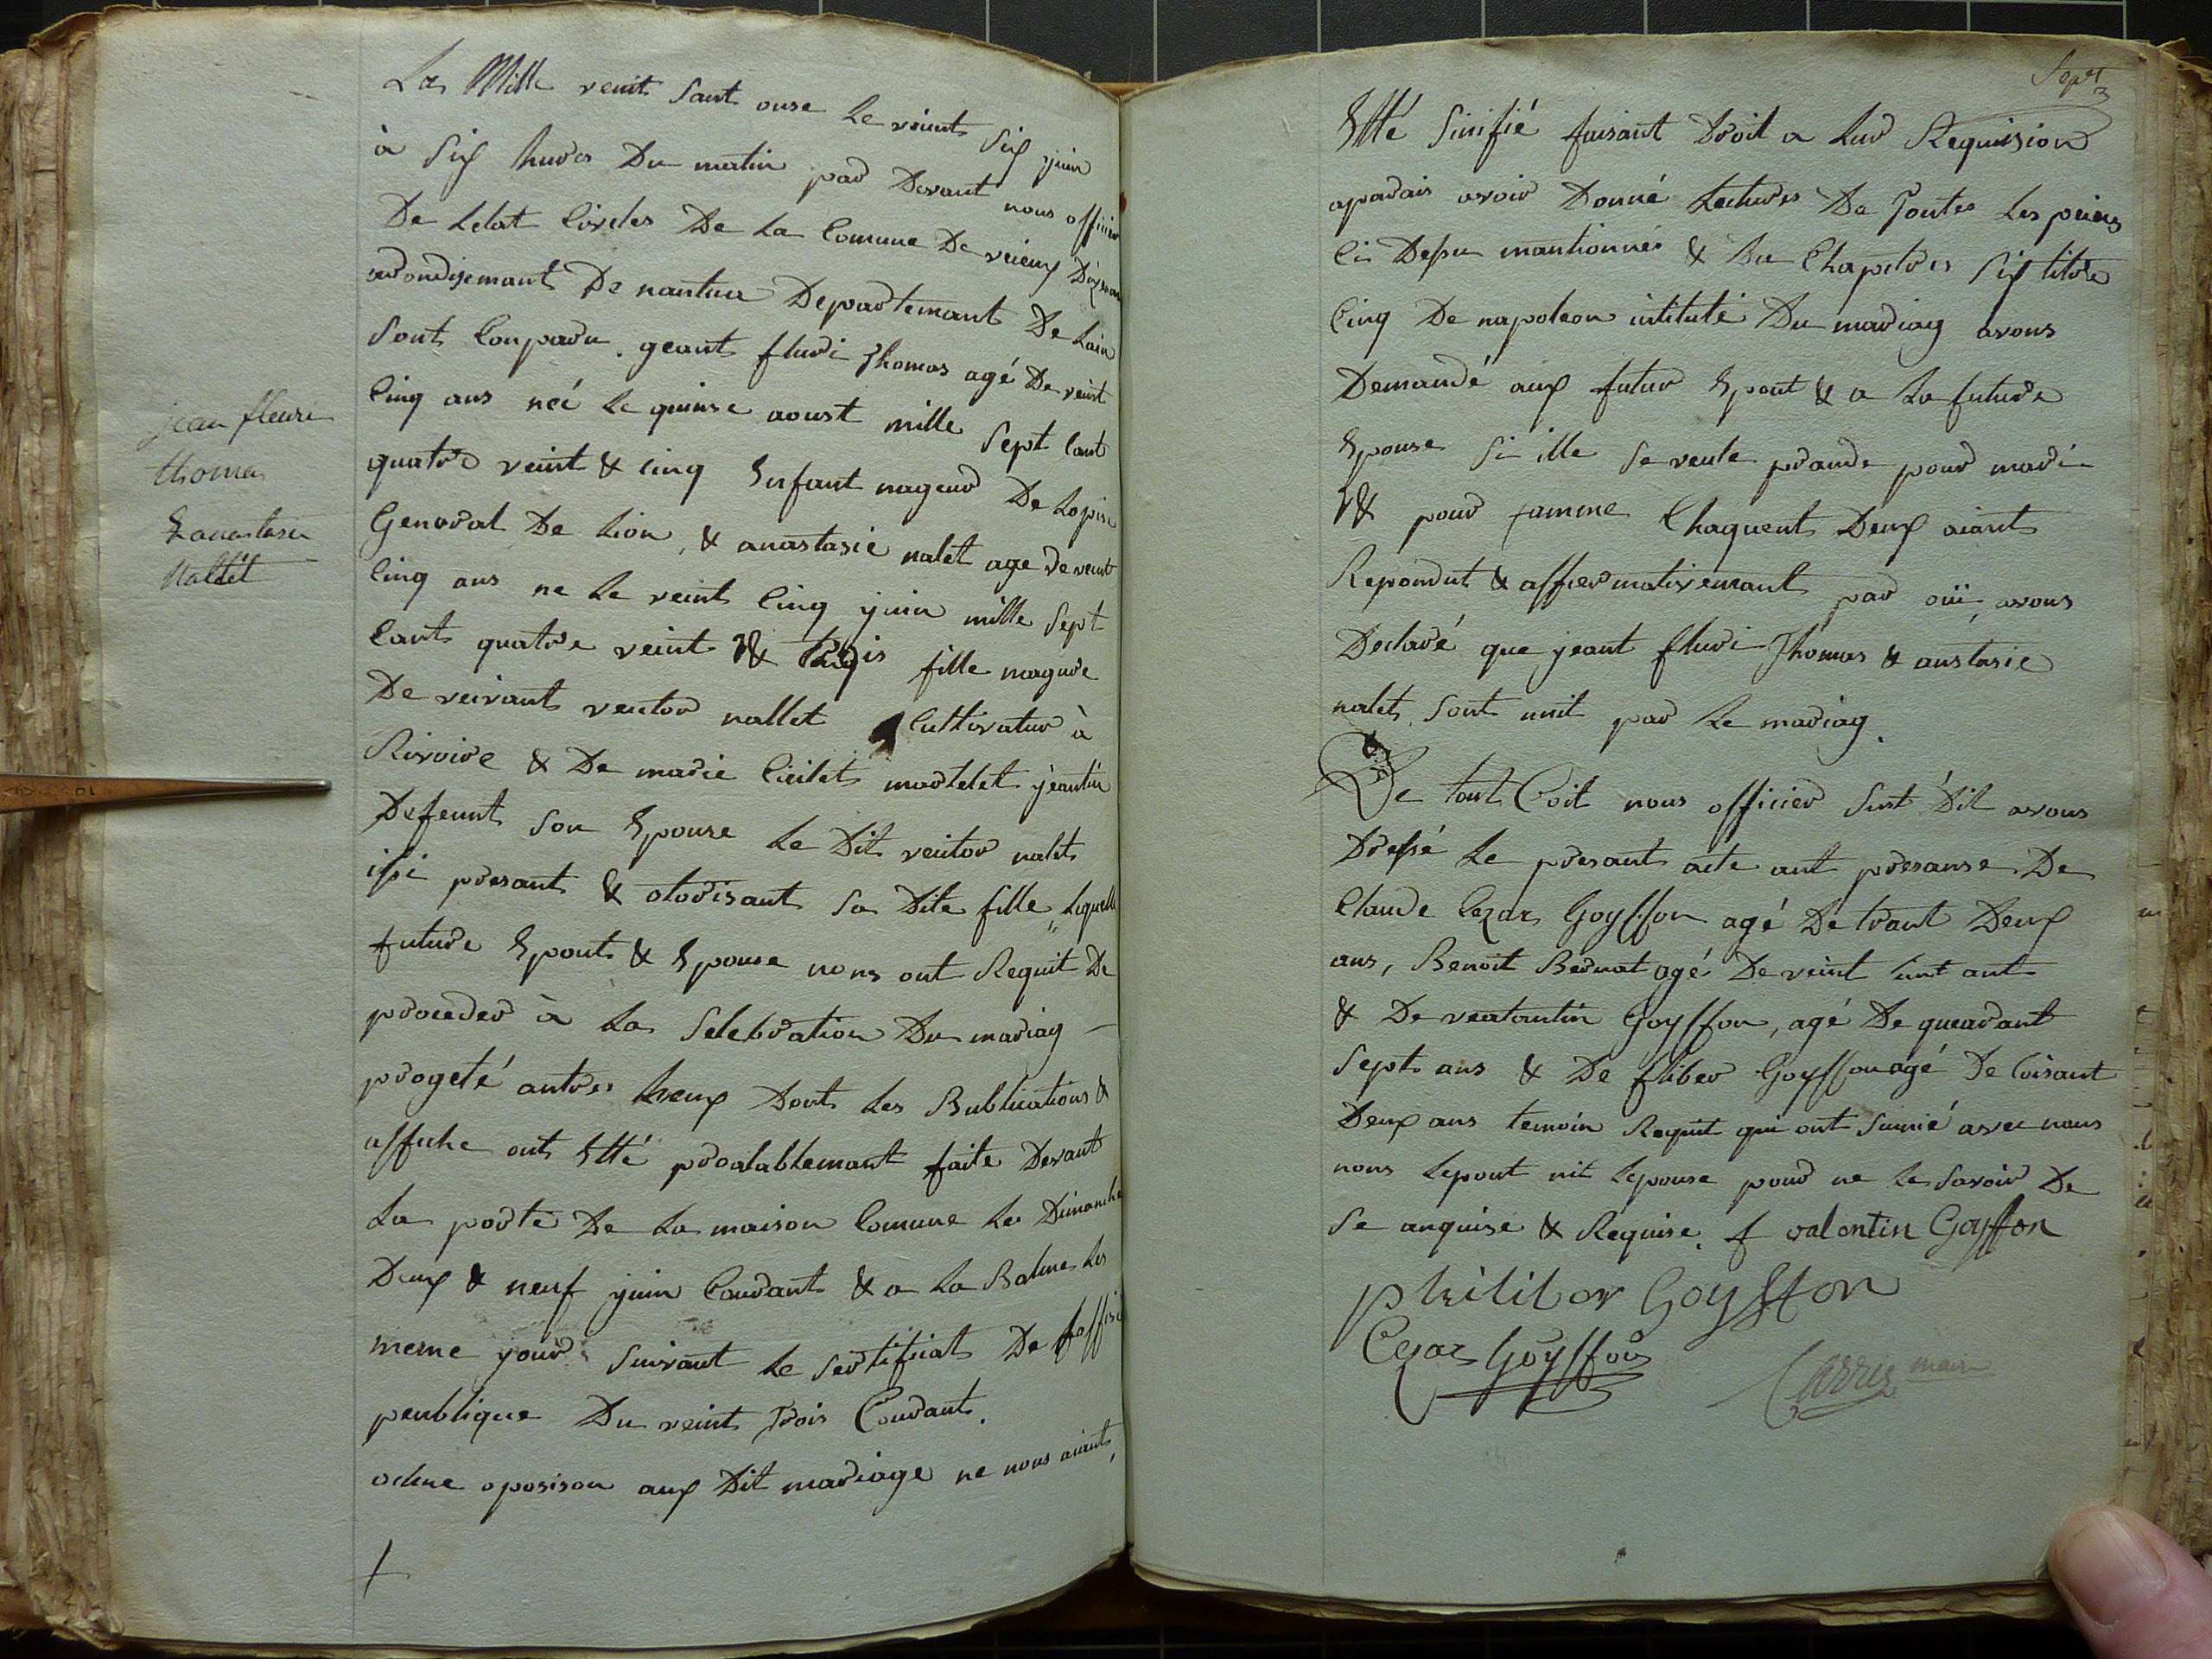 Lan Mille veuit sant onse Le veint six juin
à six hures Du matin par Devant nous officier
De Letat Civeles De La Comune De vieux Dizenave
arondisemant De nantua Departemant De Lain
sont Conparu. geant fluri Thomas agé De veint
cinq ans néé Le quinse aoust mille sept cant
quatre veint & cinq Enfant mageur De Lopise
General De Lion, & anastasie nalet age de veint
cinq ans ne Le veint cinq juin mille sept
cant quatre veint & fille magure
De veivant veutor nallet Cultivatur à
Rivoire & De marie Cicilet martelet jeantin
Defeunt son Epouse Le Dit veitor nalet
issi presant & otorisant sa Dite fille, Lequelle
future Epout & Epouse nons ont Requit De
proceder à La Selebration Du mariag —
progeté antres heux Dont Les Bublications &
affiche ont Etté prealablemant faite Devant
La porte De La maison Comune Les Dimanche
Deux & neuf juin Courant & a La Balme Les
meme jour suivant Le sertificat De Laffisié
peublique Du veint trois Courant.
ochne oposison aux Dit mariage ne nous aiant,
jean fleuri
thomas
& anastasie
Nallet
Sept
Etté sinifié faisant Droit a Lur Requision
aparais avoir Donné Lectures De Toutes Les pieies
Ci Desu mantionnés & Du Chapitres six titre
Cinq De napoleon intitulé Du mariag avons
Demandé aux futur Epout & a La future
Epouse si ille se veule prande pour mari
& pour famme Chaquent Deux aiant
Repondut & affiermativemant par oüi, avons
Declaré que jeant fluri Thomas & anstasie
nalet sont unit par Le mariag.
De tout Coit nous officier sust Dit avons
Dressé Le presant acte ant presanse De
Claude Cezar Goyffon agé De trant Deux
ans, Benoit Bernat agé De veint ant
& De veatantin Goyffon, agé De quarant
sept ans & De fliber Goyffon agé De Coisant
Deux ans temoin Requit qui ont sinnié avec nous
nons Lepout nit Lepouse pour ne Le savoir De
se anquise & Requise. f valentin Goyffon
philiber Goyffon
Cezar Goyffon
Carrier maire